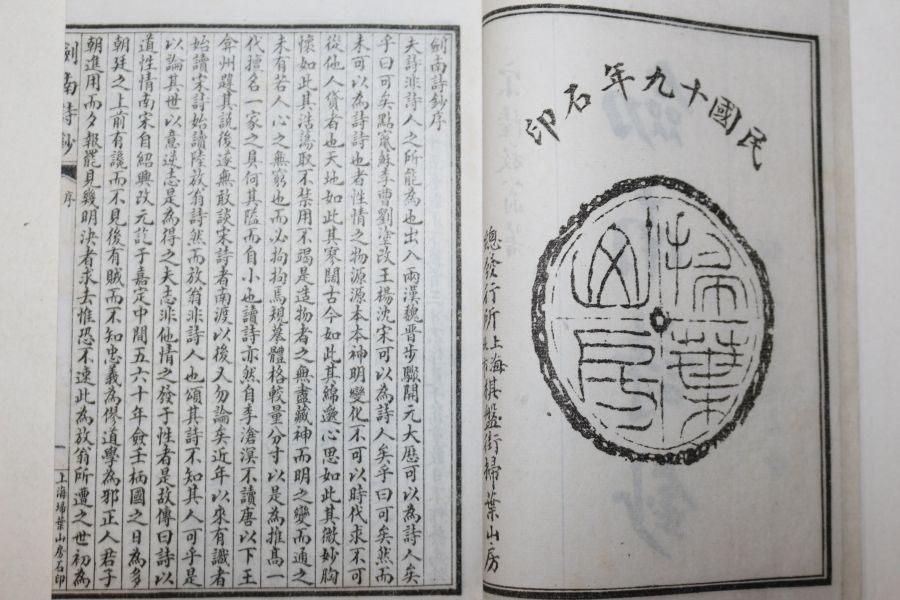 民國十九年石印
掃葉山房
總發行所上海棋盤街掃葉山房
劍南詩鈔序
夫詩非詩人之所能為也出入兩漢魏晉步驟開元大厯可以為詩人矣
乎曰可矣點竄蘇李曹劉塗改王楊沈宋可以為詩人矣乎曰可矣然而
未可以為詩詩也者性情之物源源本本神明變化不可以時代求不可
從他人貸者也天地如此其寥闊古今如此其綿邈心思如此其微妙胸
懷如此其浩蕩取不禁用不竭是造物者之無盡藏神而明之變而通之
未有若人心之無窮也而必拘拘焉規摹體格較量分寸以是為推高一
代擅名一家之具何其隘而自小也讀詩亦然自李滄溟不讀唐以下王
弇州韙其說後遂無敢談宋詩者南渡以後又勿論矣近年以來有識者
始讀宋詩始讀陸放翁詩然而放翁非詩人也頌其詩不知其人可乎是
以論其世以意逆志是為得之夫志非他情之發于性者是故傳曰詩以
道性情南宋自紹興改元訖于嘉定中間五六十年僉壬柄國之日為多
朝廷之上前有讒而不見後有賊而不知忠義為僇道學為邪正人君子
朝進用而夕報罷見幾明決者求去惟恐不速此為放翁所遭之世初為
劍南詩鈔
序
上海掃葉山房石印